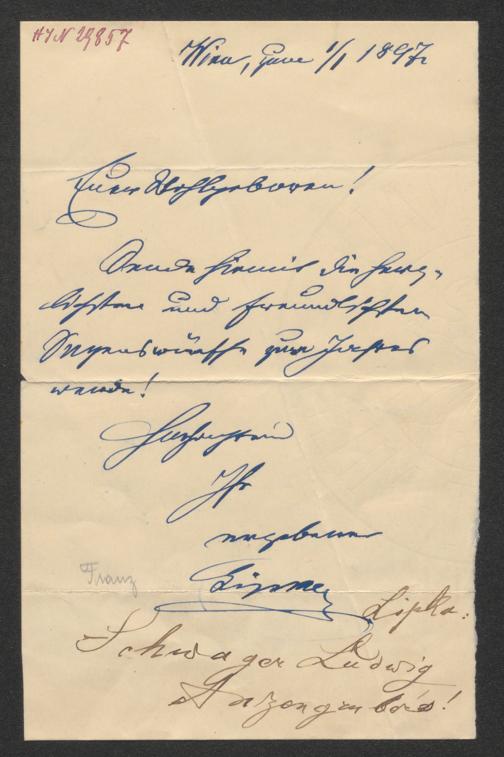 HIN 29857
Wien, am 1/1 1897
Euer Wohlgeboren!
Sende hiemit die herz-
lichsten und freundlichsten
Segenswünsche zur Jahres
wende!
Hochachtend
Ihr
ergebener
Franz
Lipka:
Schwager Ludwig
Anzengrubers!